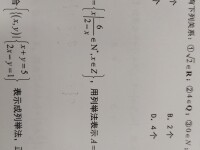 下列关系:①√2∈R;②4∈Q;③0∈N
B. 2个
D. 4个
={x|6/(2-x)∈N*,x∈Z},用列举法表示A=
{(x,y)|{x+y=5 2x-y=1}表示成列举法,